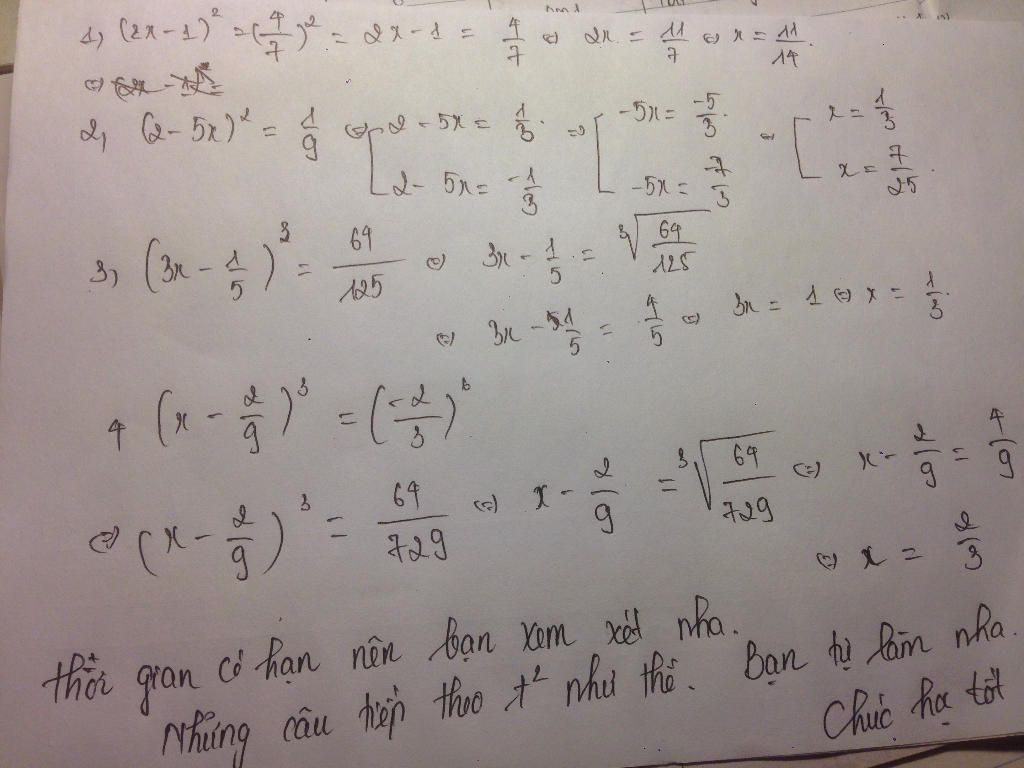 1, (2x-1)² = (4/7)² = 2x-1 = 4/7 ⇔ 2x = 11/7 ⇔ x = 11/14.
⇔
2, (2-5x)² = 1/9 ⇔ [2-5x = 1/3. ⇔ [-5x = -5/3. ⇔ [x = 1/3
2-5x = -1/3 -5x = -7/3 x = 7/25.
3, (3x - 1/5)³ = 64/125 ⇔ 3x - 1/5 = ³√(64/125)
⇔ 3x - 1/5 = 4/5 ⇔ 3x = 1 ⇔ x = 1/3.
4 (x - 2/9)³ = (-2/3)⁶
⇔ (x - 2/9)³ = 64/729 ⇔ x - 2/9 = ³√(64/729) ⇔ x - 2/9 = 4/9
⇔ x = 2/3
thời gian có hạn nên bạn xem xét nha.
Những câu tiếp theo t² như thế. Bạn tự làm nha.
Chúc họ tốt